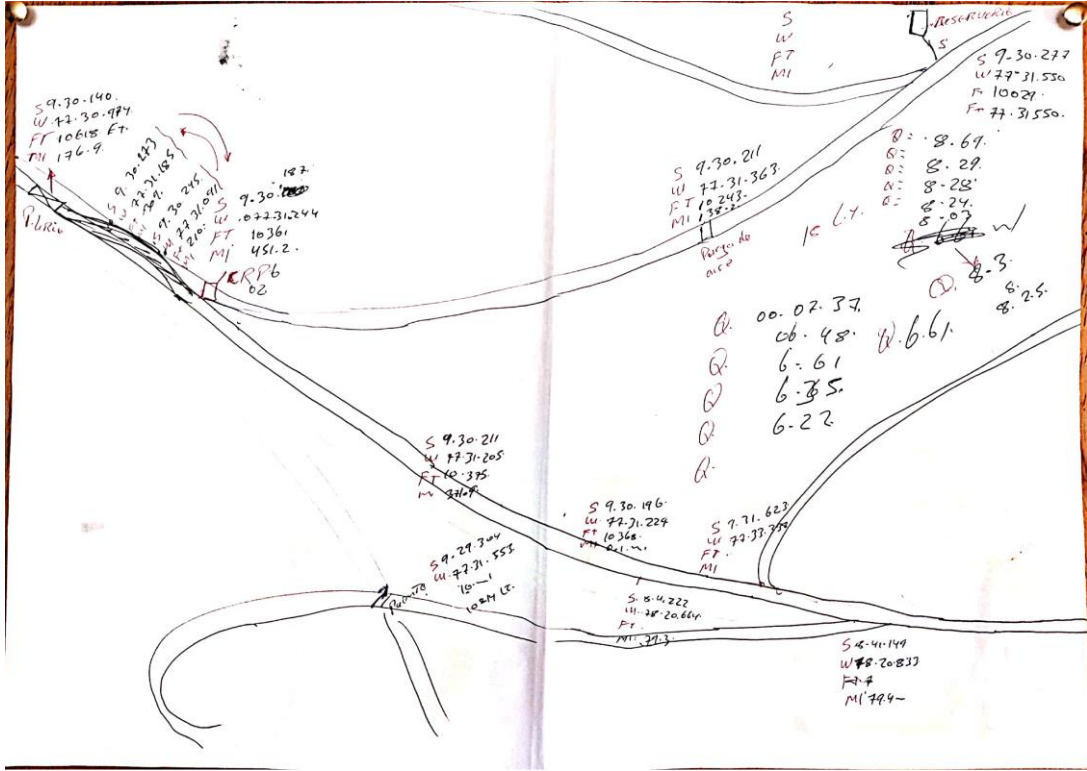 S
W
FT
MI
RESERVERIO
S
S 9-30-277
W 77-31.550
Ft 10029.
Ft 77.31550.
S 9.30.140.
W.77.30.974
FT 10618 Ft.
MI 176.9.
S 9.30.273
W 77.31.185
S 9.30.245
W 77.31.091
Ft 210.
187
S 9.30.
W .077.31.244
FT 10361
MI 451.2.
CRP6
02
S 9.30.211
W 77.31.363.
FT 10243
MI 138.2
Purga de
aire
Q= 8.69.
Q= 8.29.
Q= 8-28
Q= 8-24.
8-07
8-3.
8.
8.25.
Q. 00.07.37.
06.48.
Q. 6.61
Q 6.35.
Q 6-22
Q.
Q.6.61.
S 9.30.211
W 77-31-205
FT 10.375.
MI 371.9
S 9.30.196.
W. 77.31.224
Ft 10368
S 9.31.623
W 77.33.339
FT.
MI
S 9.29.304
W.77.31.553
S. 8.4.222
W.78-20.664.
FT.
MI. 79.3
S 8-41-149
W 78-20.833
FT.7
MI 79.4-